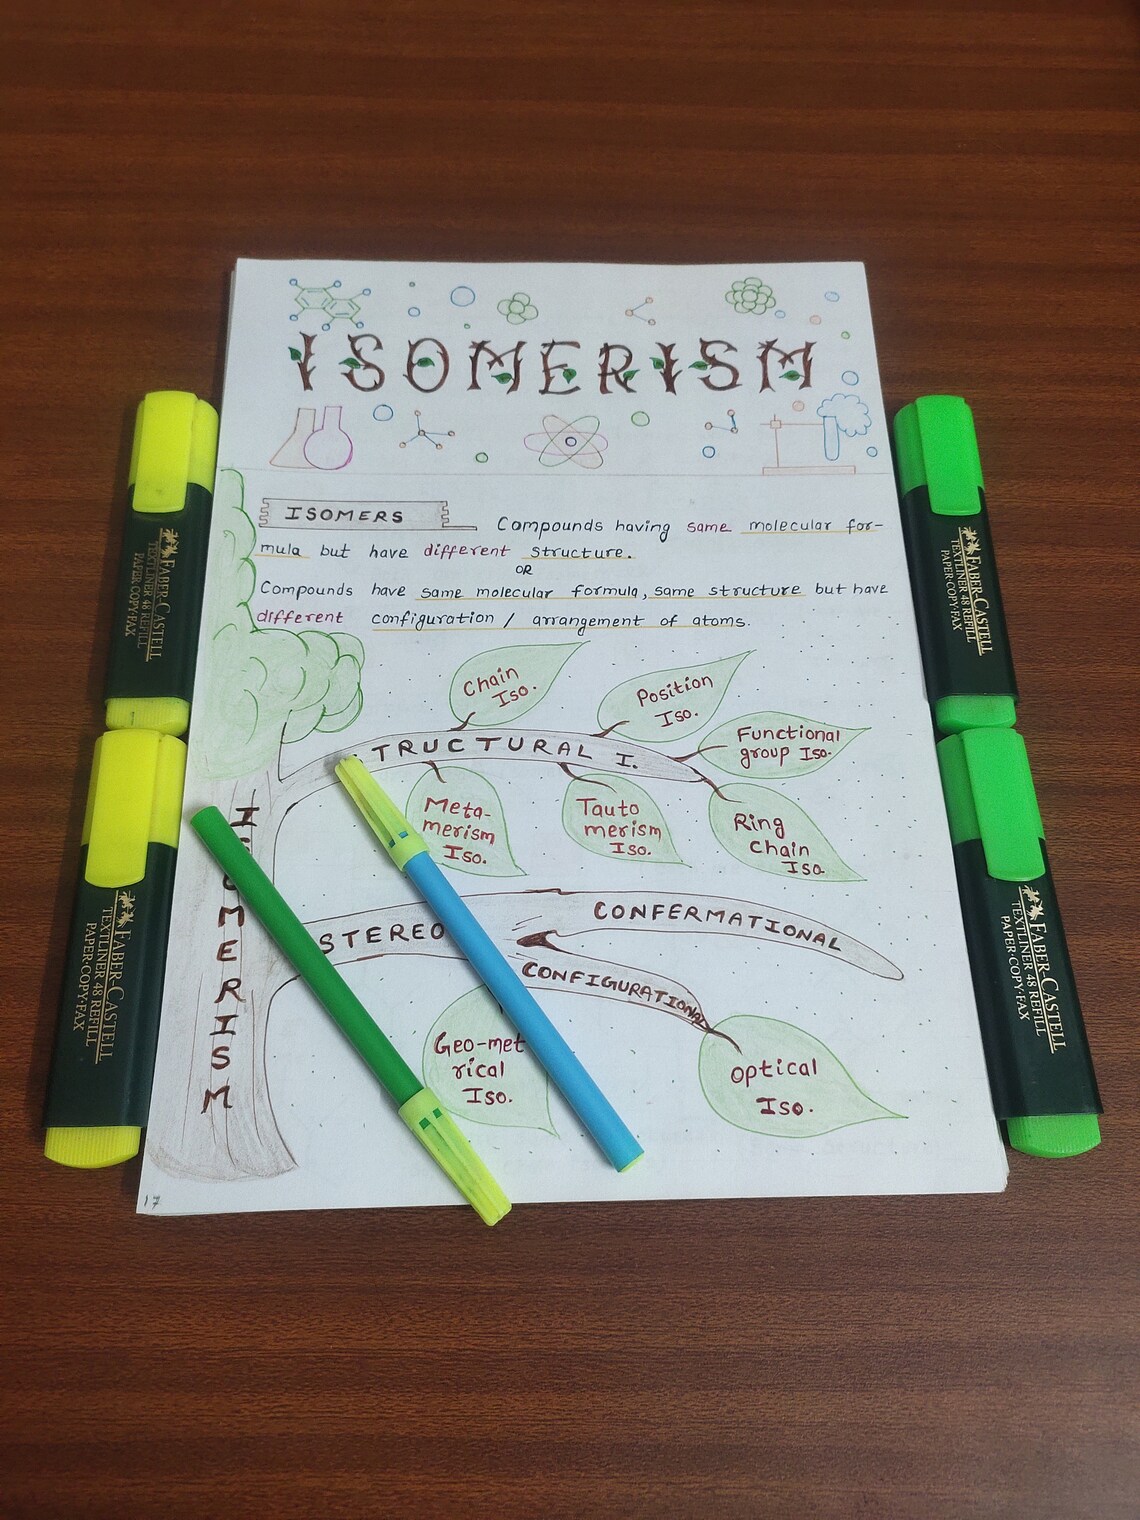 ISOMERISM
ISOMERS
Compounds having same molecular for-
mula but have different structure.
OR
Compounds have same molecular formula, same structure but have
different configuration / arrangement of atoms.
Chain
Iso.
Position
Iso.
Functional
group Iso.
TRUCTURAL I.
Meta-
merism
Iso.
Tauto
merism
Iso.
Ring
Chain
Iso
ISOMERISM
STEREO
CONFERMATIONAL
CONFIGURATIONAL
Geo-met
rical
Iso.
Optical
Iso.
17
FABER-CASTELL
TEXTLINER 48 REFILL
PAPER·COPY·FAX
FABER-CASTELL
TEXTLINER 48 REFILL
PAPER·COPY·FAX
FABER-CASTELL
TEXTLINER 48 REFILL
PAPER·COPY·FAX
FABER-CASTELL
TEXTLINER 48 REFILL
PAPER·COPY·FAX